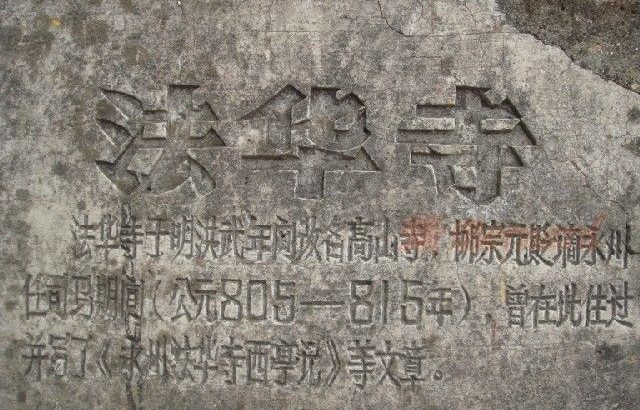 法华寺
法华寺于明洪武年间改名高山寺，柳宗元贬谪永州
任司马期间（公元805—815年），曾在此住过
并写了《永州法华寺西亭记》等文章。